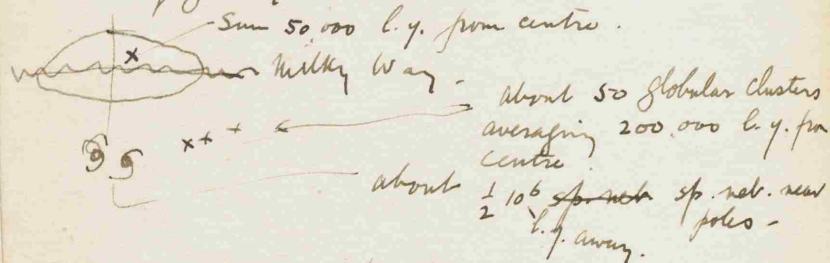 Sun 50,000 l.y. from centre.
Milky Way -
about 50 globular clusters
averaging 200,000 l.y. from
centre.
about ½ 10⁶ sp. neb sp. neb. near
poles -
l.y. away.